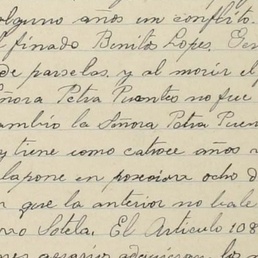 alguno años un conflito.
l finado Benito Lopes, Gen
de parselas, y al morir el
eñora Petra Puentes no fue
ambio la Señora Petra Puen
y tiene como catroce años
la pone en poseciora ocho d
r que la anterior no bale
rro Sotela. El Articulo 108